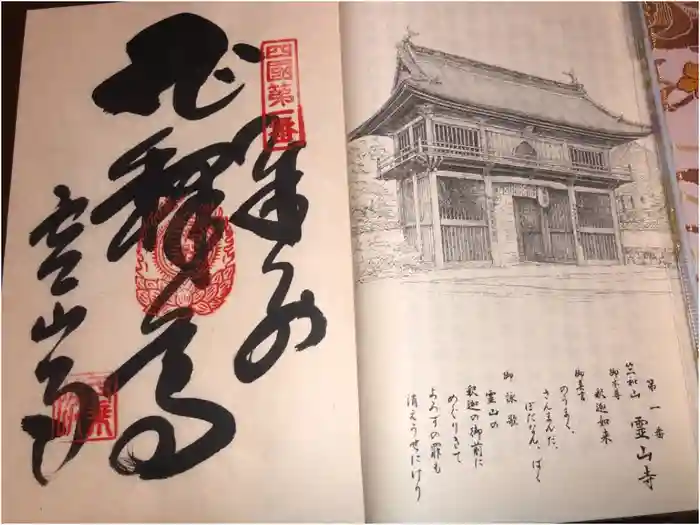 第一番
竺和山 霊山寺
御本尊 釈迦如来
御真言
のうまく、
さんまんだ、
ぼだなん、ばく
御詠歌
霊山の
釈迦の御前に
めぐりきて
よろずの罪も
消えうせにけり
四國第一番
奉納
釋迦
霊山寺